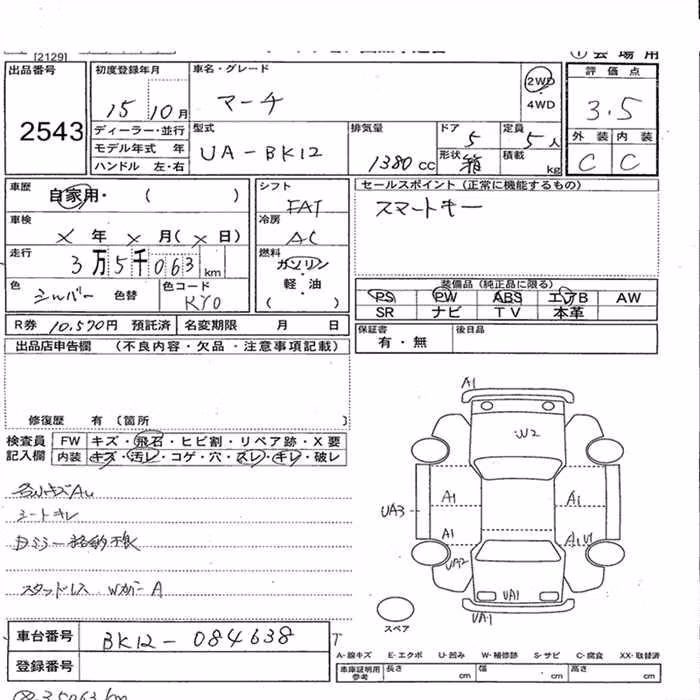 [2129]
① 会場用
出品番号
2543
初度登録年月
15 10月
車名・グレード
マーチ
2WD
4WD
評価点
3.5
外装 内装
C C
ディーラー・並行
モデル年式 年
ハンドル 左・右
型式
UA-BK12
排気量
1380cc
ドア 5
定員 5人
形状 箱
積載 kg
車歴
自家用・( )
車検
× 年 × 月( × 日)
走行
3万5千063km
色
シルバー 色替
色コード
KY0
シフト
FAT
冷房
AC
燃料
ガソリン・
軽・油
( )
セールスポイント (正常に機能するもの)
スマートキー
装備品 (純正品に限る)
PS PW ABS エアB AW
SR ナビ TV 本革
R券 10,570円 預託済 名変期限 月 日
保証書
有・無
後日品
出品店申告欄 (不良内容・欠品・注意事項記載)
修復歴 有 (箇所 )
検査員
記入欄
FW キズ・飛石・ヒビ割・リペア跡・X要
内装 キズ・汚レ・コゲ・穴・スレ・キレ・破レ
シートキレ
スタッドレス Wカバー A
A1
W2
A1
A1
UA3
A1
A1 U1
UA2
UA1
UA1
スペア
車台番号
BK12-084638
登録番号
A-線キズ E-エクボ U-凹み W-補修跡 S-サビ C-腐食 XX-取替済
車庫証明用
参考
長さ cm 幅 cm 高さ cm
35063km